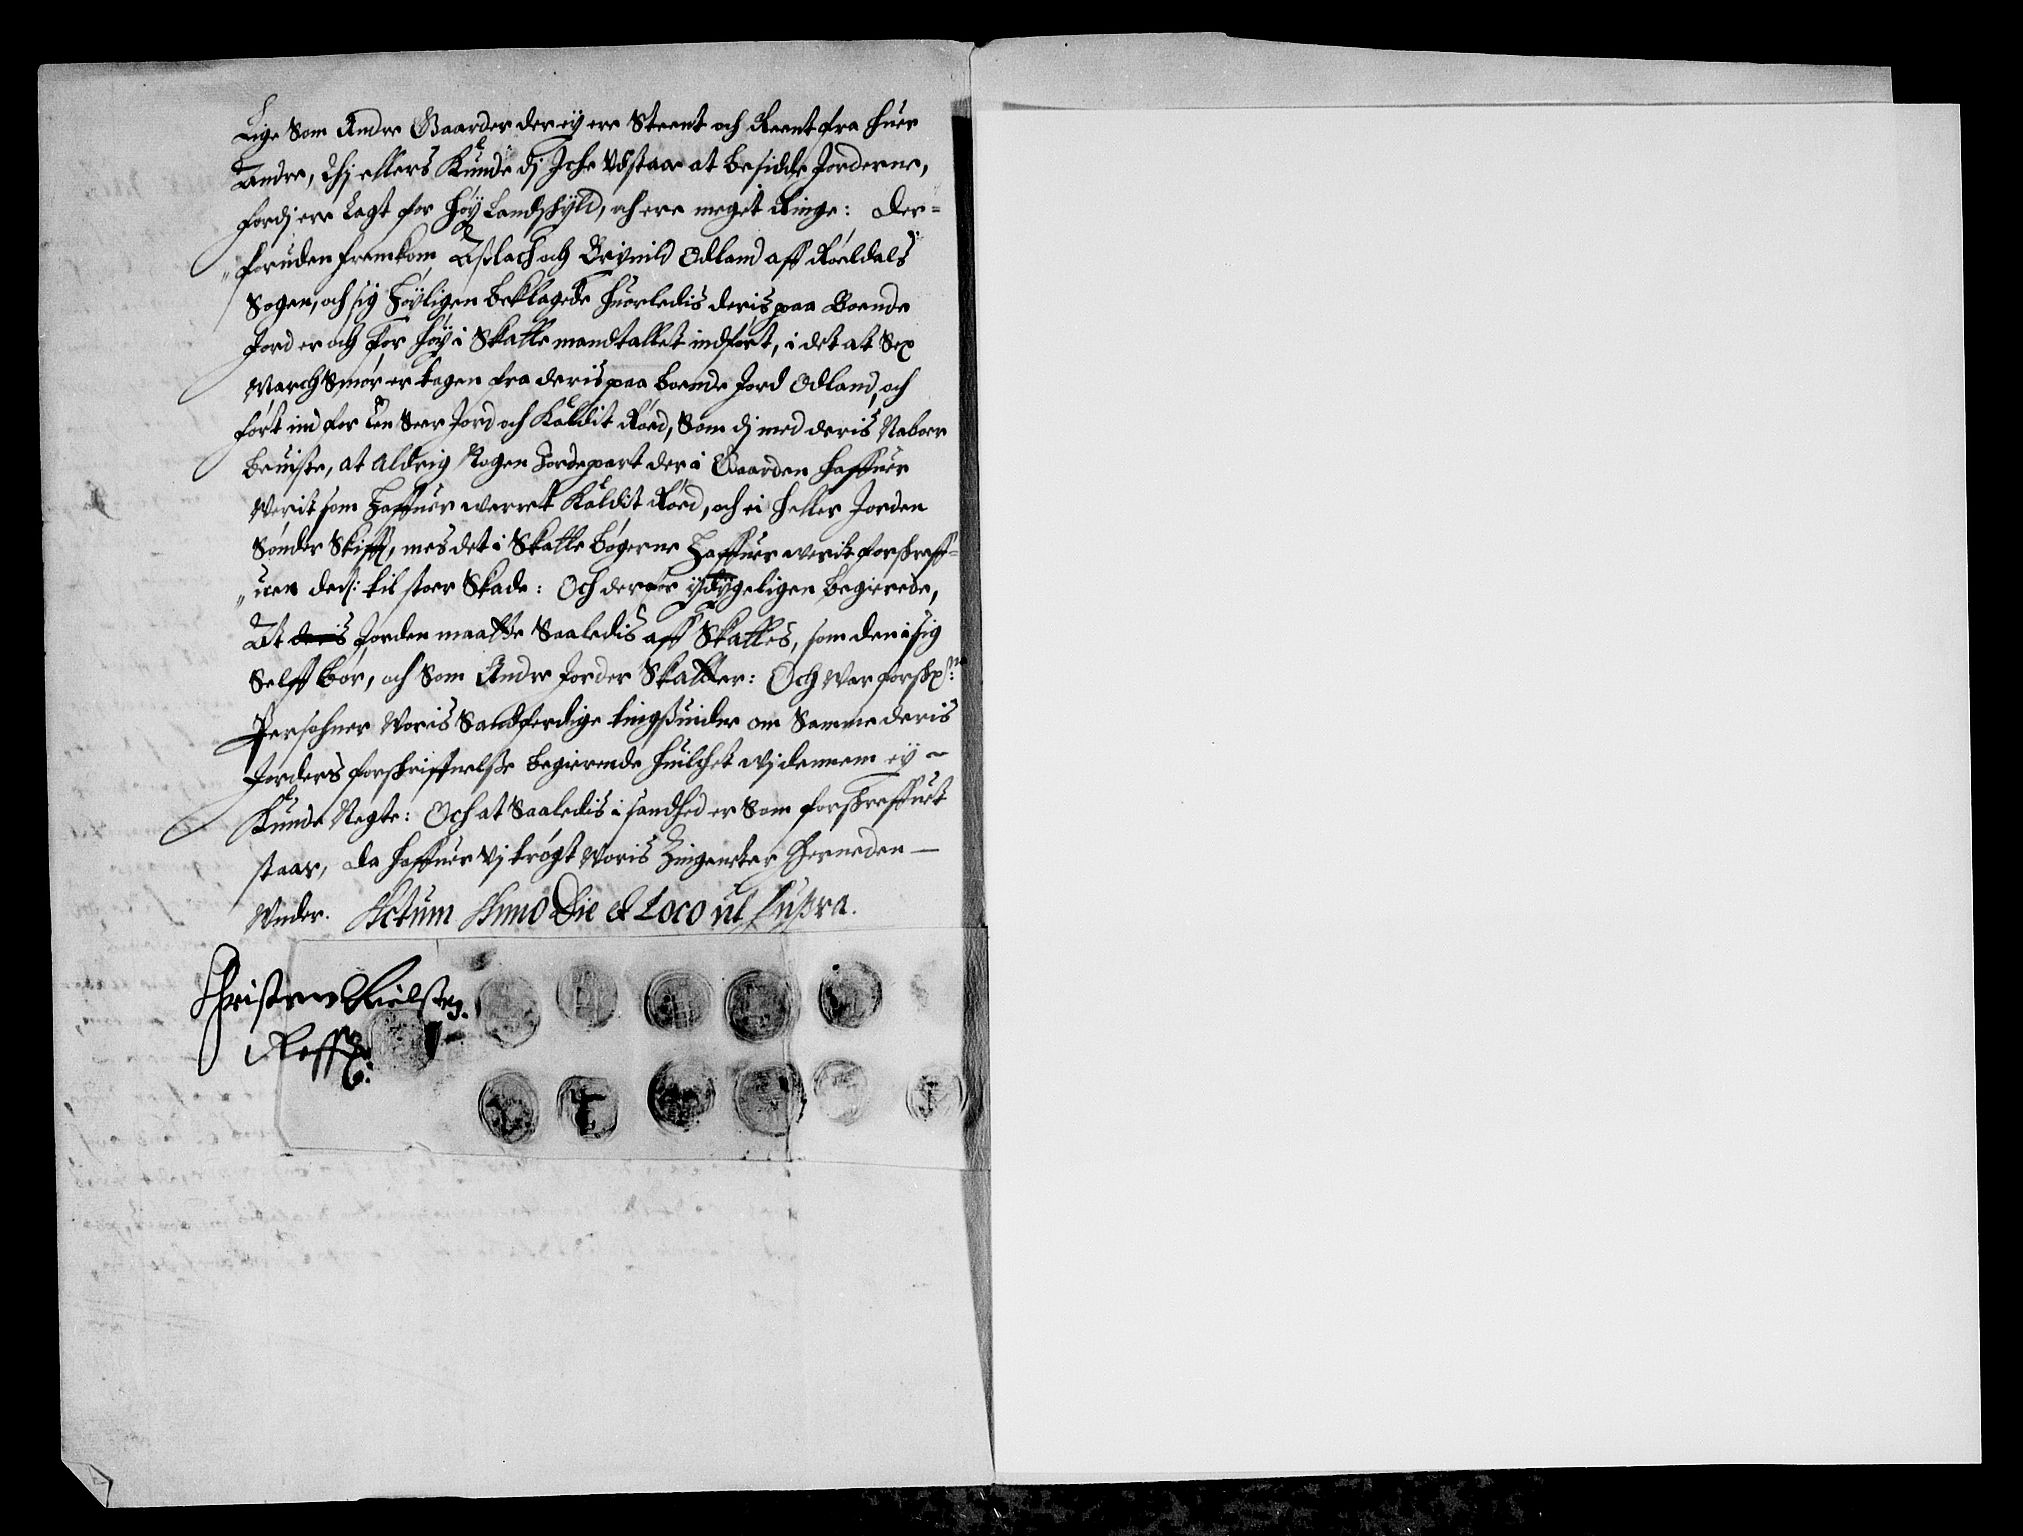 Lige Som Andre Gaarder der ey ere Steent och Reent fra huer
Andre, Thj ellers Kunde dj Iche Udstaae at besidde Jorderne,
fordj ere Lagt for høy Landschyld, och ere meget Ringe: Der-
foruden fremkom Aslach och Brynild Odland aff Røeldals
Sogen, och sig Høyligen beklagede huorledis deris paa Boende
Jord er och for høy i Skatte mandtallet indført, i det at Sex
March Smør er tagen fra deris paa boende Jord Odland, och
ført ind for en Seer Jord och Kaldit Røed, Som dj med deris Naboer
beuiste, at Aldrig Nogen Jordepart der i Gaarden haffuer
Werit som haffuer werret Kaldit Røed, och ei heller Jorden
Sønder Skifft, mens det i Skatte bøgerne haffuer werit forskreff-
uen dem til stoer Skade: Och derfor ydygeligen begierede,
At Jorden maatte Saaledis aff Skattes, som den i sig
Selff bør, och Som Andre Jorder Skatter: Och war forskr:ne
Persohner Woris Sandferdige tingsuinder om Samme deris
Jorders forskriffuelse begierende huilchet wj dennem ey
Kunde Negte: Och at Saaledis i sandhed er Som forskreffuet
staar, da haffuer wj trøgt Woris Zingeneter herneden
Under. Actum Anno Die et Loco ut supra.
Christen Nielsen